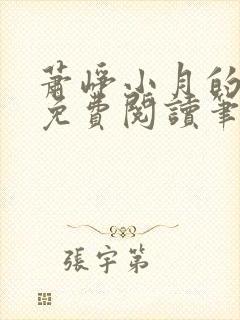 蕭崢小月的
免費閱讀筆
張宇第